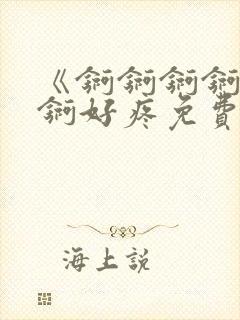 《锕锕锕锕
锕好疼免費
海上説